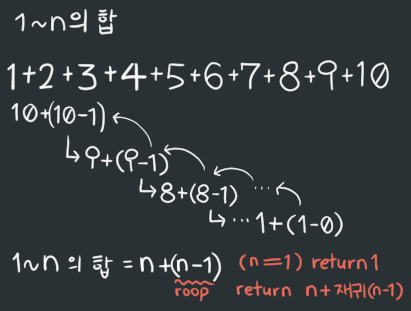 1~n의 합
1+2+3+4+5+6+7+8+9+10
10+(10-1)
↳9+(9-1)
↳8+(8-1) ...
↳...1+(1-0)
1~n의 합 = n+(n-1) (n=1) return 1
roop return n+재귀(n-1)